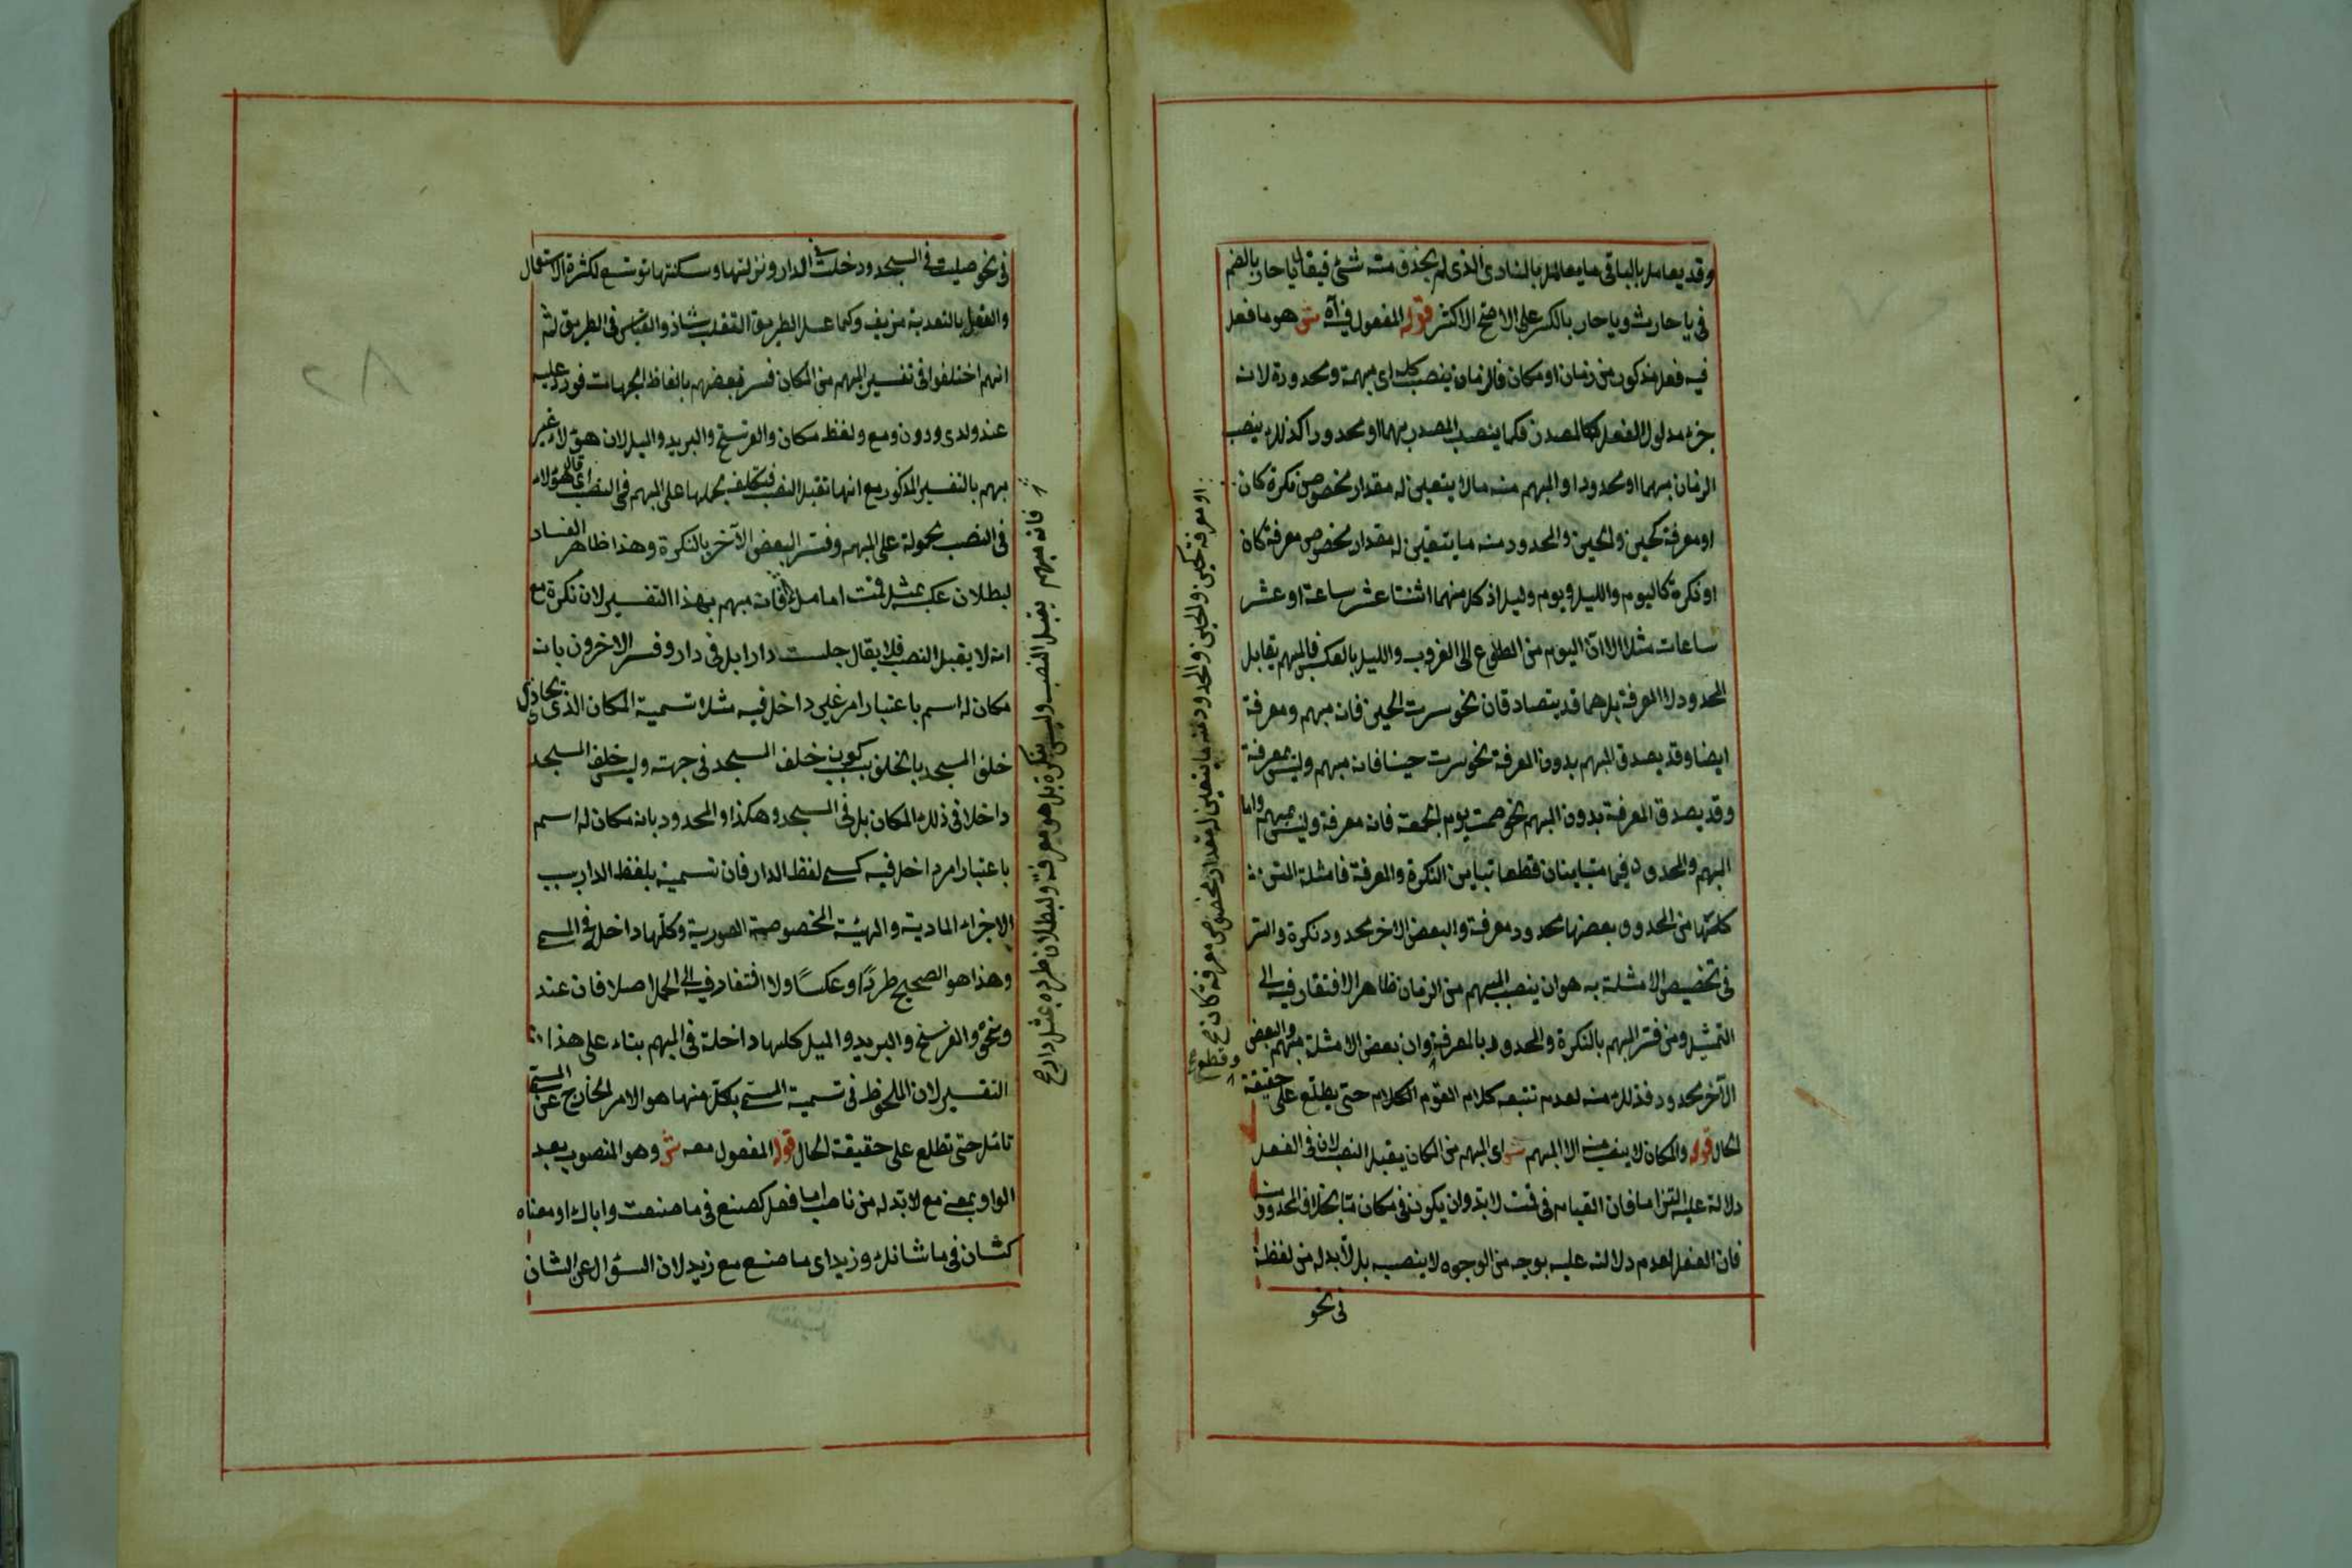 وقد يعامل بالباقى ما يعامل بالمنادى الذى لم يحذف منه شئ فيقال يا حار بالضم
فى يا حارث ويا حار بالكسر على الاصح الاكثر قوله المفعول فيه آه ش هو ما فعل
فيه فعل مذكور من زمان او مكان فالزمان ينصب كله اى مبهمه ومحدوده لانه
جزء مدلول الفعل كالمصدر فكما ينصب المصدر مبهما او محدودا كذلك ينصب
الزمان مبهما او محدودا والمبهم منه ما لا يتعين له مقدار مخصوص نكرة كان
او معرفة كحين والحين والمحدود منه ما يتعين له مقدار مخصوص معرفة كان
او نكرة كاليوم والليل ويوم وليل اذ كل منهما اثنتا عشر ساعة او عشر
ساعات مثلا الا ان اليوم من الطلوع الى الغروب والليل بالعكس فالمبهم يقابل
المحدود لا المعرفة بل هما قد يتصادقان نحو سرت الحين فانه مبهم ومعرفة
ايضا وقد يصدق المبهم بدون المعرفة نحو سرت حينا فانه مبهم وليس بمعرفة
وقد يصدق المعرفة بدون المبهم نحو صمت يوم الجمعة فانه معرفة وليس بمبهم واما
المبهم والمحدود فهما متباينان قطعا تباين النكرة والمعرفة فامثلة المتن
كلها من المحدود بعضها محدود معرفة والبعض الاخر محدود نكرة والسر
فى تخصيص الامثلة به هو ان ينصب المبهم من الزمان ظاهر لا افتقار فيه الى
التمثيل ومن فسر المبهم بالنكرة والمحدود بالمعرفة وان بعض الامثلة مبهم والبعض
الآخر محدود فذلك منه لعدم تتبعه كلام القوم الكلام حتى يطلع على حقيقة
الحال قوله والمكان لا ينصب منه الا المبهم ش اى المبهم من المكان يقبل النصب لان فى الفعل
دلالة عليه التزاما فان القيام فى قمت لا بد وان يكون فى مكان ما بخلاف المحدود منه
فان الفعل لعدم دلالته عليه بوجه من الوجوه لا ينصبه بل لا بد له من لفظة
فى نحو
او معرفة كحين والحين والمحدود منه ما يتعين له مقدار مخصوص معرفة كان صح
فى نحو صليت فى المسجد ودخلت فى الدار ونزلتها وسكنتها توسع لكثرة الاستعمال
والقول بالتعدية مزيف وكما عسل الطريق الثعلب شاذ والقياس فى الطريق ثم
انهم اختلفوا فى تفسير المبهم من المكان فسر بعضهم بالفاظ الجهات فورد عليه
عند ولدى ودون ومع ولفظ مكان والفرسخ والبريد والميل لان هؤلاء غير
مبهم بالتفسير المذكور مع انها تقبل النصب فتكلف بحملها على المبهم فى النصب اى قال هؤلاء
فى النصب محمولة على المبهم وفسر البعض الآخر بالنكرة وهذا ظاهر الفساد
لبطلان عكسه بمثل قمت امامك فانه مبهم بهذا التفسير لان نكرة مع
انه لا يقبل النصب فلا يقال جلست دارا بل فى دار وفسر الاخرون بانه
مكان له اسم باعتبار امر غير داخل فيه مثلا تسمية المكان الذى يحاذى
خلف المسجد بالخلف بسبب كون خلف المسجد فى جهته وليس خلف المسجد
داخلا فى ذلك المكان بل فى المسجد وهكذا والمحدود بانه مكان له اسم
باعتبار امر داخل فيه كمسمى لفظ الدار فان تسميته بلفظ الدار بسبب
الاجزاء المادية والهيئة المخصوصة الصورية وكلها داخل فى المسمى
وهذا هو الصحيح طردًا وعكسًا ولا افتقار فيه الى الحمل اصلا فان عند
ونحوه والفرسخ والبريد والميل كلها داخلة فى المبهم بناء على هذا
التفسير لان الملحوظ فى تسمية المسمى بكل منها هو الامر الخارج عن المسمى
تأمل حتى تطلع على حقيقة الحال قوله المفعول معه ش وهو المنصوب بعد
الواو بمعنى مع لا بد له من ناصب اما فعل كصنع فى ما صنعت واباك او معناه
كشان فى ما شانك وزيدا اى ما صنع مع زيد لان السؤال عن الشان
فانه مبهم يقبل النصب وليس بنكرة بل هو معرفة ولبطلان طرده بمثل دار صح